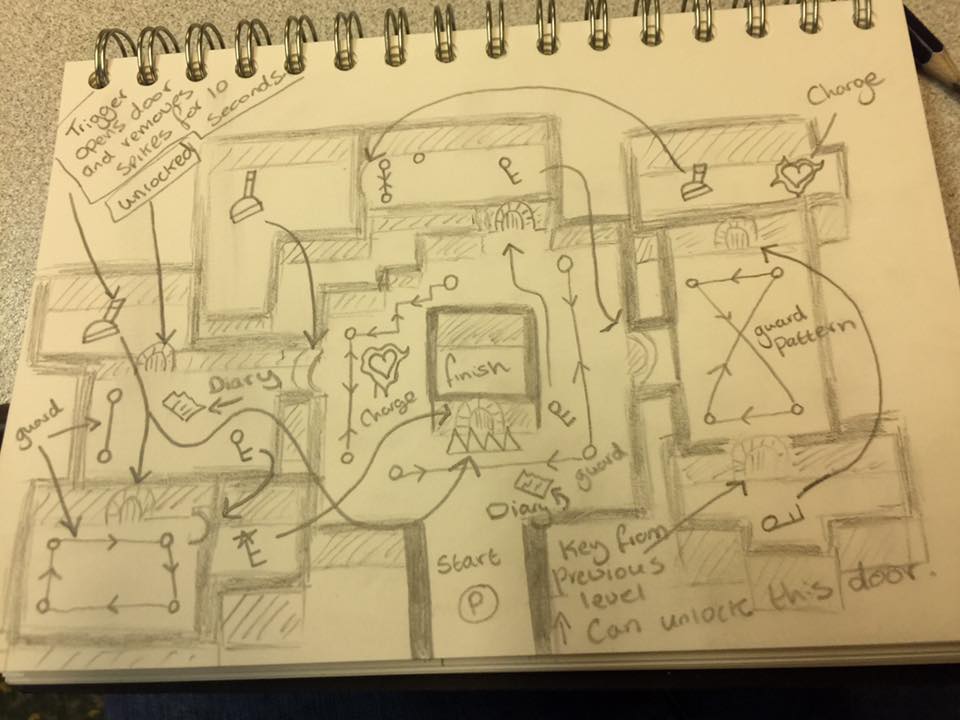 Trigger
opens door
and removes
spikes for 10
seconds.
unlocked
Charge
guard
pattern
finish
Diary
Charge
guard
guard
Diary
Start
P
Key from
previous
level
↑ Can unlock this door.